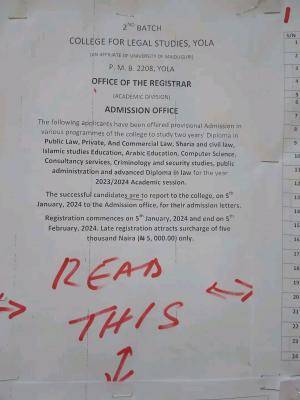 2ND BATCH
COLLEGE FOR LEGAL STUDIES, YOLA
(AN AFFILIATE OF UNIVERSITY OF MAIDUGURI)
P. M. B. 2208, YOLA
OFFICE OF THE REGISTRAR
(ACADEMIC DIVISION)
ADMISSION OFFICE
The following applicants have been offered provisional Admission in
various programmes of the college to study two years' Diploma in
Public Law, Private, And Commercial Law, Sharia and civil law,
Islamic studies Education, Arabic Education, Computer Science,
Consultancy services, Criminology and security studies, public
administration and advanced Diploma in law for the year
2023/2024 Academic session.
The successful candidates are to report to the college, on 5th
January, 2024 to the Admission office, for their admission letters.
Registration commences on 5th January, 2024 and end on 5th
February, 2024. Late registration attracts surcharge of five
thousand Naira (₦ 5, 000.00) only.
READ
THIS
S/N